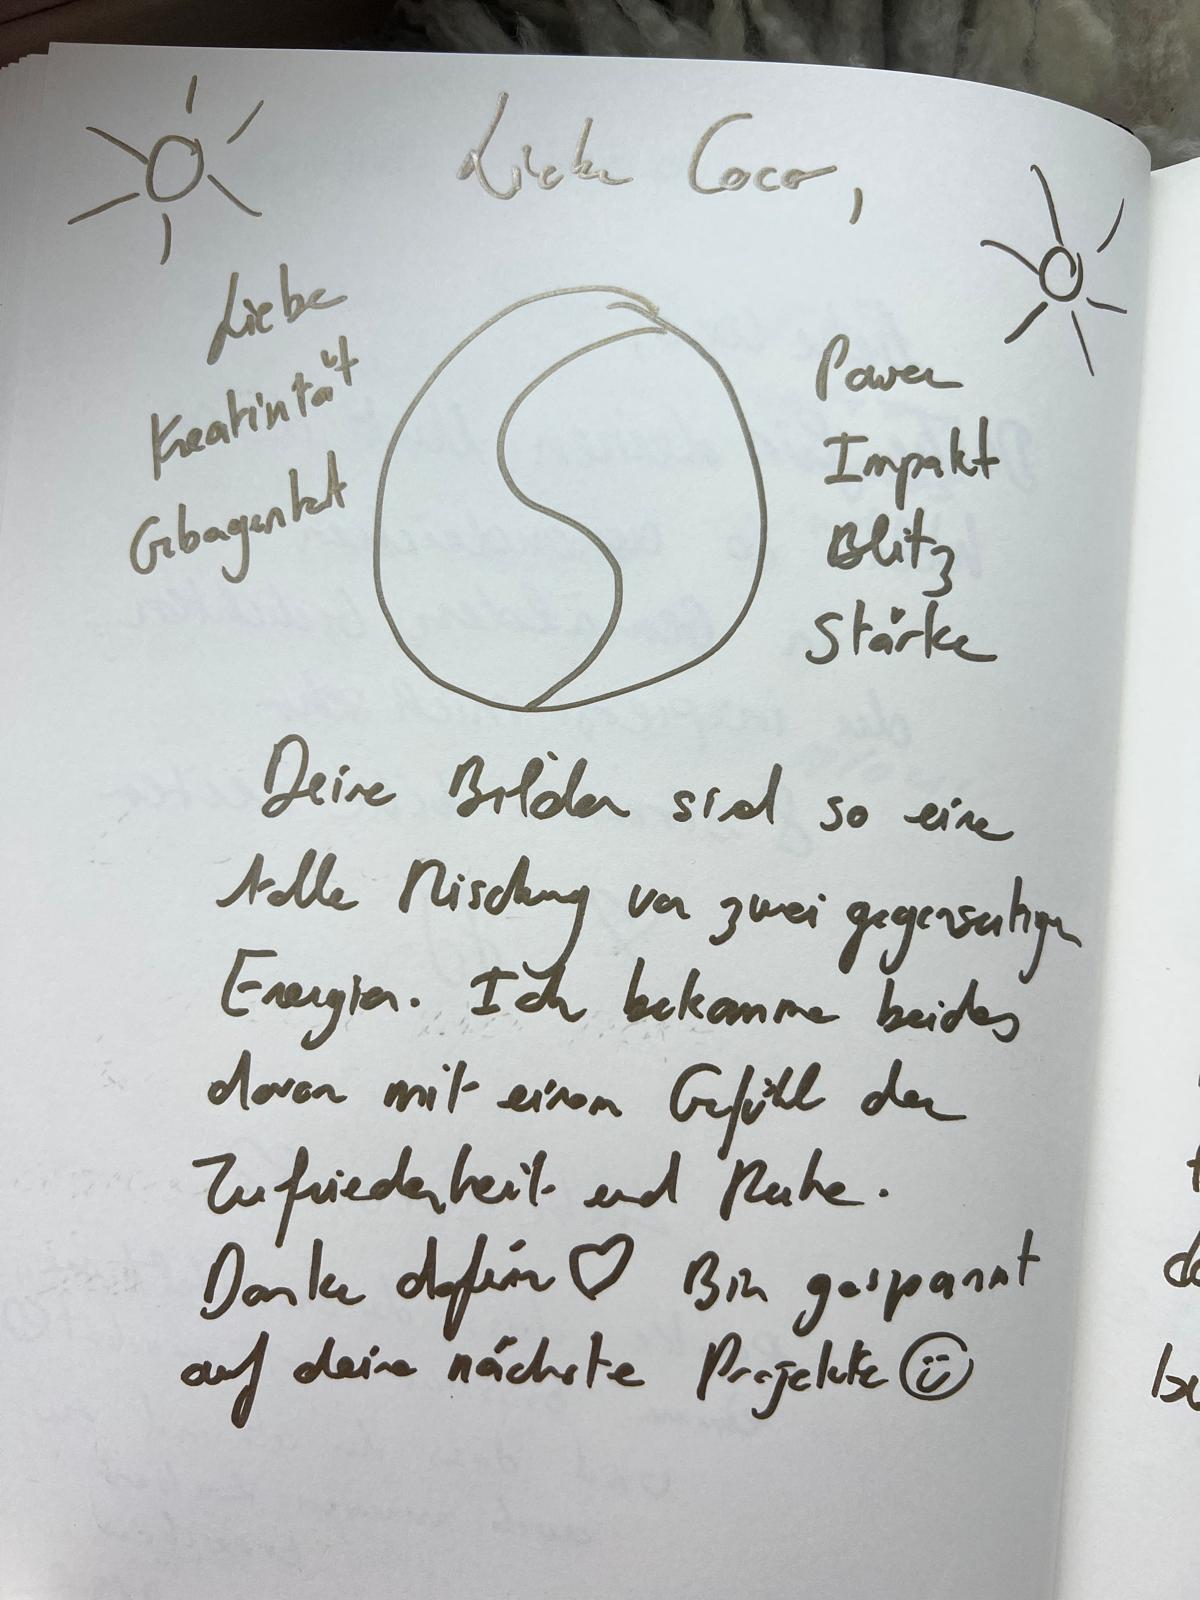 Liebe Coco,
Liebe
Kreatinität
Power
Impakt
Blitz
Stärke
Deine Bilder sind so eine
tolle Mischung von zwei gegenseitigen
Energien. Ich bekomme beides
davon mit einem Gefühl der
Zufriedenheit und Ruhe.
Danke dafür ♡ Bin gespannt
auf deine nächste Projekte ☺